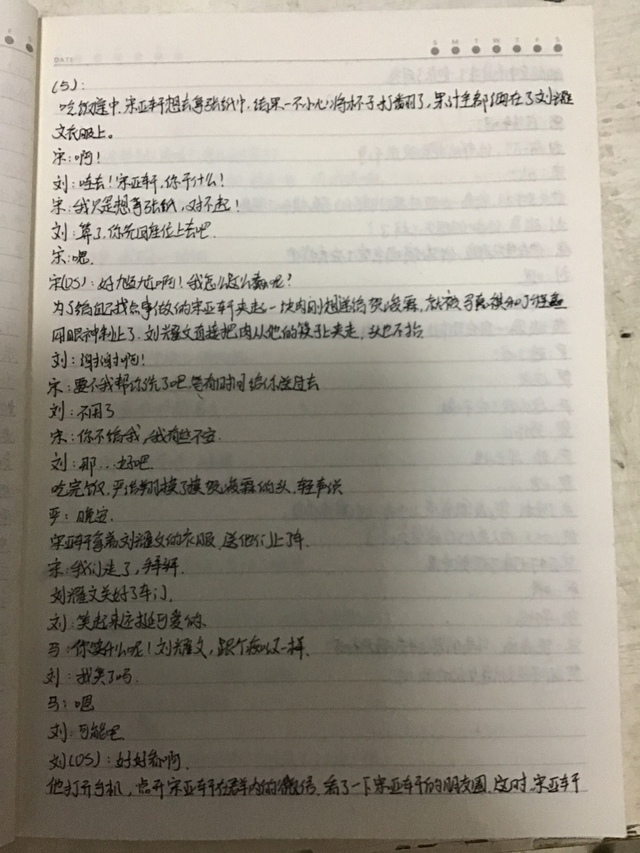 DATE
S M T W T F S
(5):
吃饭途中,宋亚轩想去拿张纸巾,结果一不小心将杯子打翻了,果汁全部洒在了刘耀
文衣服上。
宋:啊!
刘:哇去!宋亚轩,你干什么!
宋:我只是想拿张纸,对不起!
刘:算了,你先回座位上去吧.
宋:嗯.
宋(OS):好尴尬啊!我怎么这么蠢呢?
为了给自己找点事做的宋亚轩夹起一块肉刚想递给贺峻霖,就被
用眼神制止了.刘耀文直接把肉从他的筷子上夹走,头也不抬
刘:谢谢啊!
宋:要不我帮你洗了吧.等有时间给你送过去
刘:不用了
宋:你不给我,我有些不安.
刘:那...好吧
吃完饭,严浩翔摸了摸贺峻霖的头,轻声说
严:晚安.
宋亚轩拿着刘耀文的衣服,送他们上了车.
宋:我们走了,拜拜.
刘耀文关好了车门.
刘:笑起来还挺可爱的.
马:你笑什么呢!刘耀文,跟个痴汉一样.
刘:我笑了吗.
马:嗯
刘:可能吧
刘(OS):好好看啊.
他打开手机,点开宋亚轩在群内的微信.看了一下宋亚轩的朋友圈.这时,宋亚轩